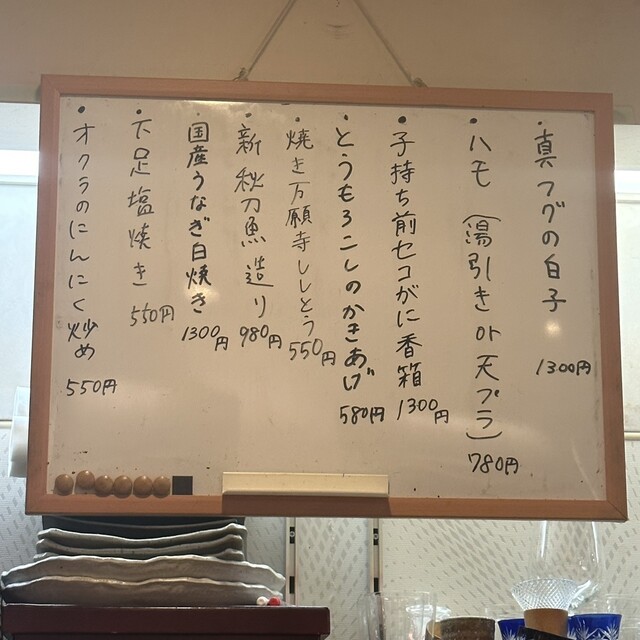 ・真フグの白子 1300円
・ハモ(湯引き or 天プラ) 780円
・子持ち前セコがに香箱 1300円
・とうもろこしのかきあげ 580円
・焼き万願寺ししとう 550円
・新秋刀魚造り 980円
・国産うなぎ白焼き 1300円
・下足塩焼き 550円
・オクラのにんにく炒め 550円